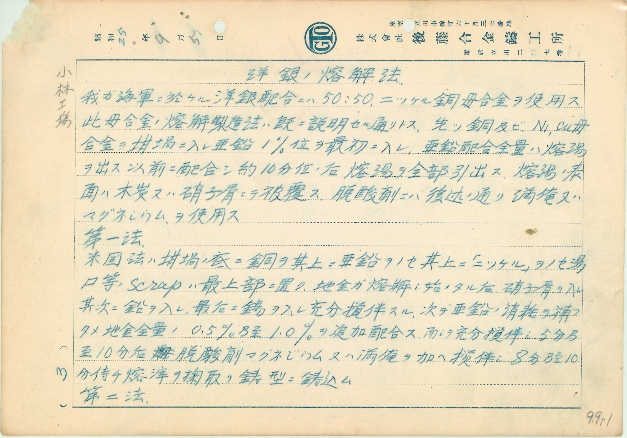 昭和25年9月5日
株式會社 後藤合金鑄工所
小林工場
洋銀ノ熔解法
我カ海軍ニ於ケル洋銀配合ニハ50:50.ニッケル銅母合金ヲ使用ス
此母合金ノ熔解製造法ハ既ニ説明セル通リトス、先ツ銅及ビNi,Cu母
合金ヲ坩堝ニ入レ亜鉛1%位ヲ最初ニ入レ、亜鉛配合全量ハ熔湯
ヲ出ス以前ニ配合シ約10分位ノ后熔湯ヲ全部引出ス、熔湯ノ表
面ハ木炭又ハ硝子屑ニテ被覆ス、脱酸剤ニハ後述ノ通リ満俺又ハ
マグネシウムヲ使用ス
第一法.
米国法ハ坩堝ノ底ニ銅ヲ其上ニ亜鉛ヲノセ其上ニ「ニッケル」ヲノセ湯
口等ノscrapハ最上部ニ置ク、地金ガ熔解シ始メタル后硝子屑ヲ入レ
其次ニ鉛ヲ入レ、最后ニ錫ヲ入レ充分攪伴スル、次ニ亜鉛ノ消耗ヲ補フ
タメ地金全量ノ0.5%乃至1.0%ヲ追加配合ス、而シテ充分攪伴シ5分乃
至10分后脱酸剤マグネシウム又ハ満俺ヲ加ヘ攪伴シ8分乃至10
分侍チ熔滓ヲ掬取リ鋳型ニ鋳込ム
第二法.
(3)
99-1